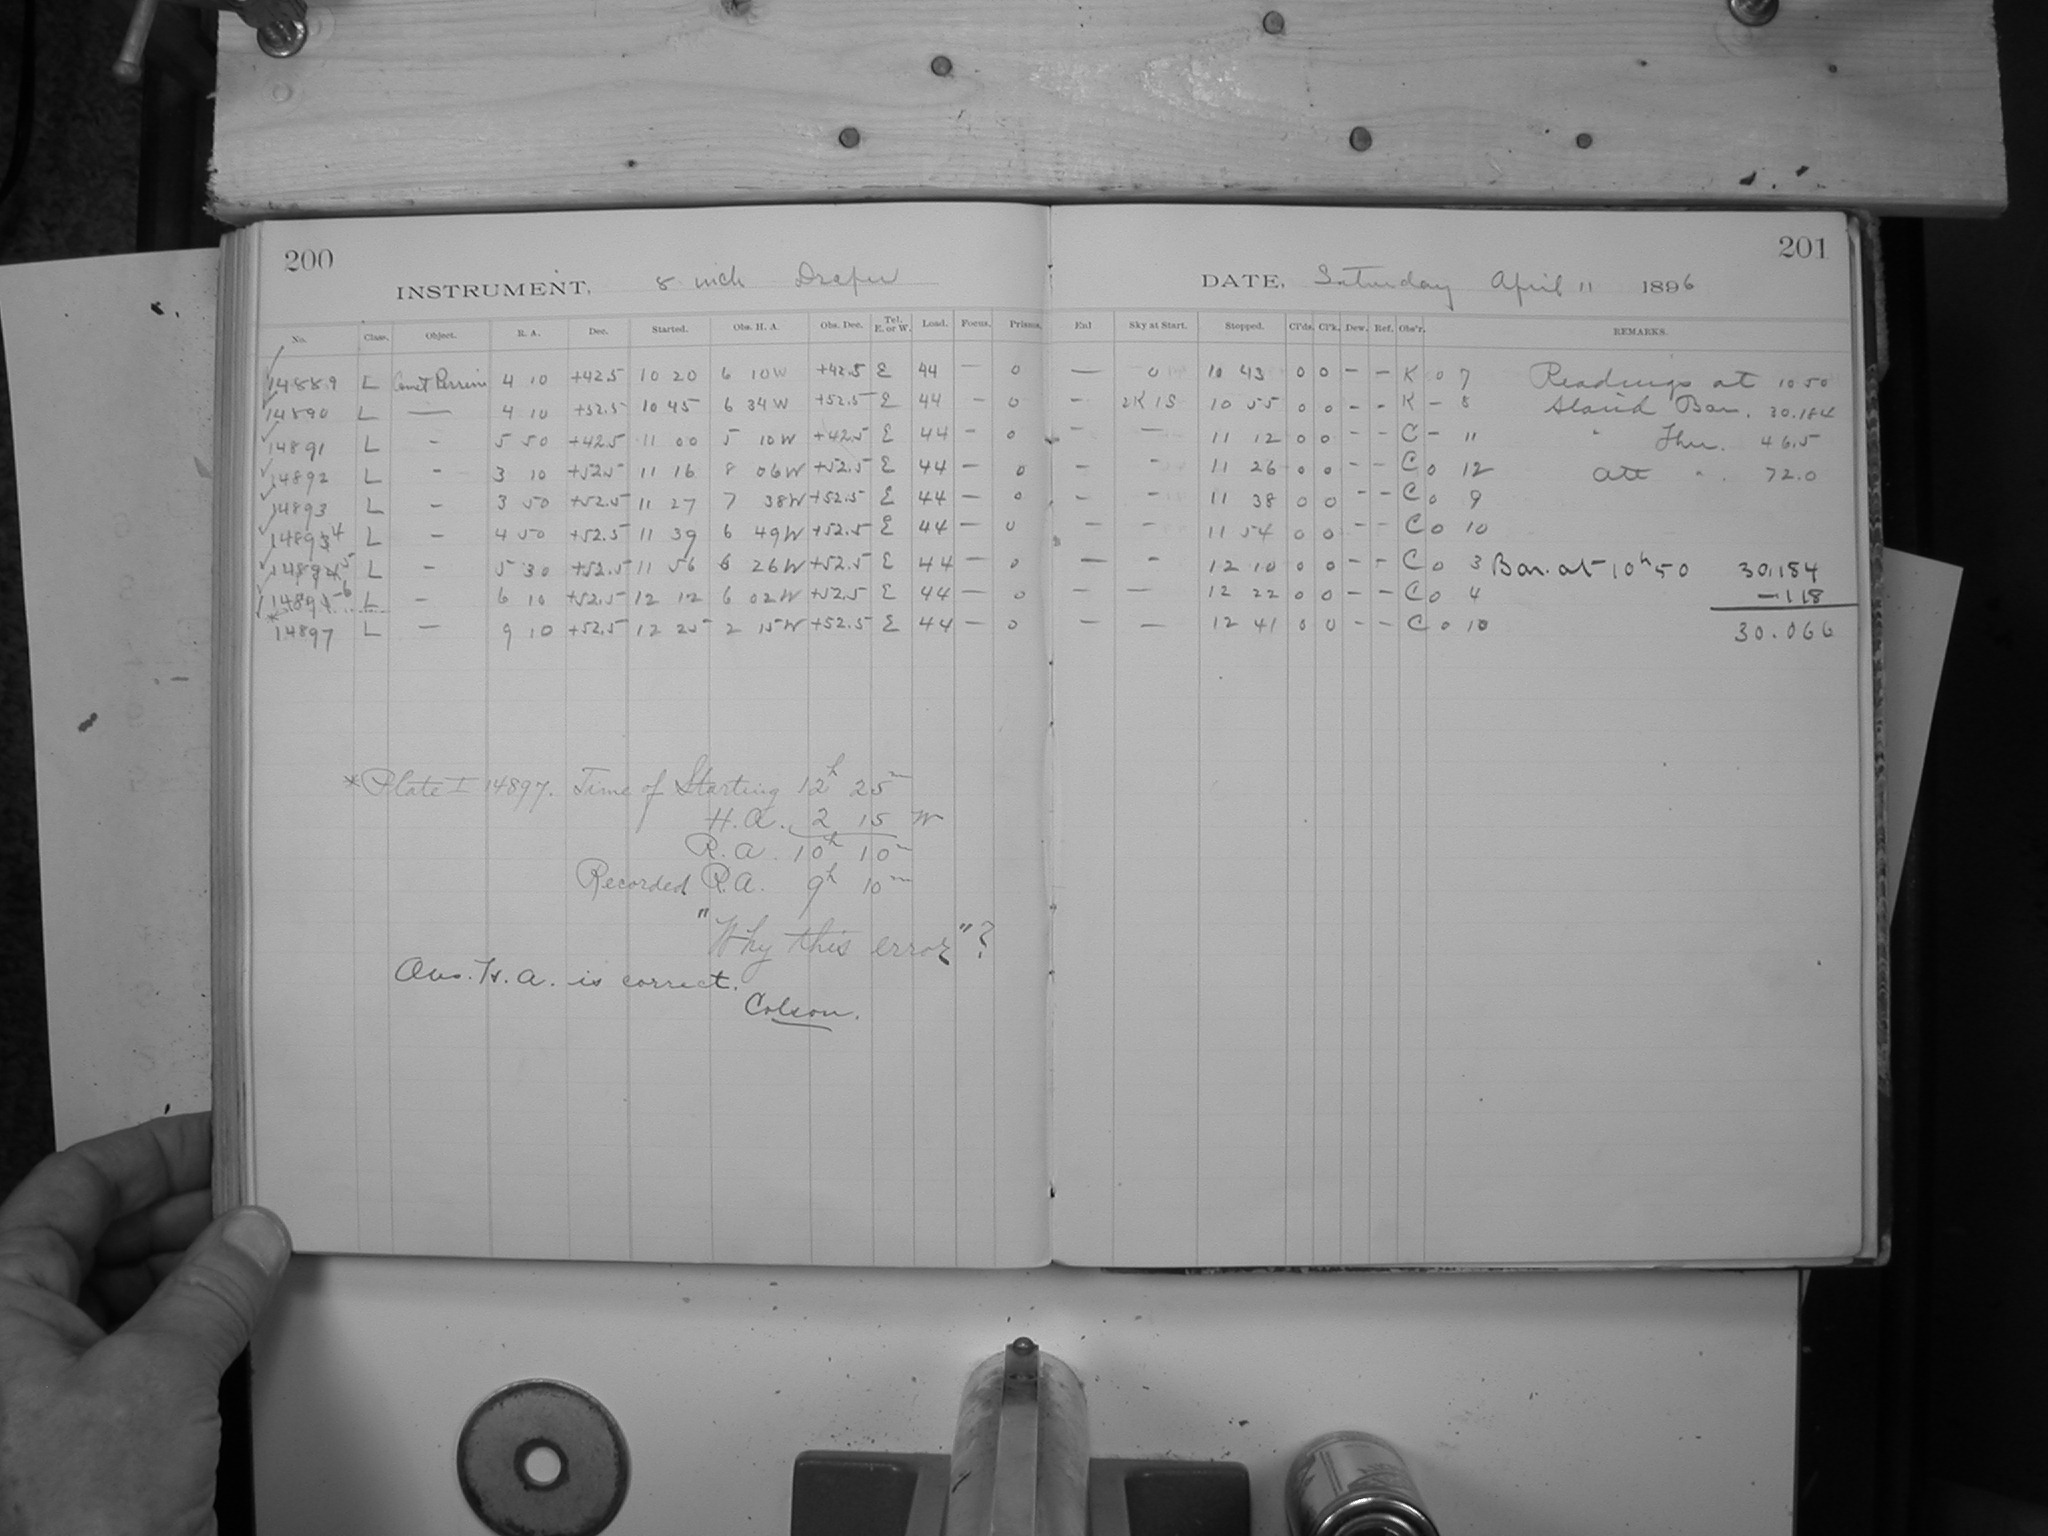 200
201
INSTRUMENT, 8 inch Draper
DATE, Saturday April 11 1896
No. Class. Object. R. A. Dec. Started. Obs. H. A. Obs. Dec. Tel. E. or W. Load. Focus. Prisms. Enl Sky at Start. Stopped. Cl'ds. Cl'k. Dew. Ref. Obs'r. REMARKS.
14889 L Comet Perrine 4 10 +42.5 10 20 6 10W +42.5 E 44 — 0 — 0 10 43 0 0 - - K 0 7 Readings at 10 50
14890 L — 4 10 +52.5 10 45 6 34W +52.5 E 44 - 0 - 2K 1S 10 55 0 0 - - K - 8 Stand Bar. 30.184
14891 L - 5 50 +42.5 11 00 5 10W +42.5 E 44 - 0 - — 11 12 0 0 - - C - 11 " Ther. 46.5
14892 L - 3 10 +52.5 11 16 8 06W +52.5 E 44 - 0 - - 11 26 0 0 - - C 0 12 Att " . 72.0
14893 L - 3 50 +52.5 11 27 7 38W +52.5 E 44 - 0 - - 11 38 0 0 - - C 0 9
148934 L - 4 50 +52.5 11 39 6 49W +52.5 E 44 - 0 - - 11 54 0 0 - - C 0 10
148945 L - 5 30 +52.5 11 56 6 26W +52.5 E 44 - 0 — - 12 10 0 0 - - C 0 3 Bar. at 10h 50 30.184
14895-6 L - 6 10 +52.5 12 12 6 02W +52.5 E 44 - 0 - — 12 22 0 0 - - C 0 4 -.118
*14897 L — 9 10 +52.5 12 25 2 15W +52.5 E 44 - 0 - — 12 41 0 0 - - C 0 10 30.066
*Plate I 14897. Time of Starting 12h 25m
H.A. 2 15 W
R.A. 10h 10m
Recorded R.A. 9h 10m
"Why this error"?
Ans. H.A. is correct.
Colson.